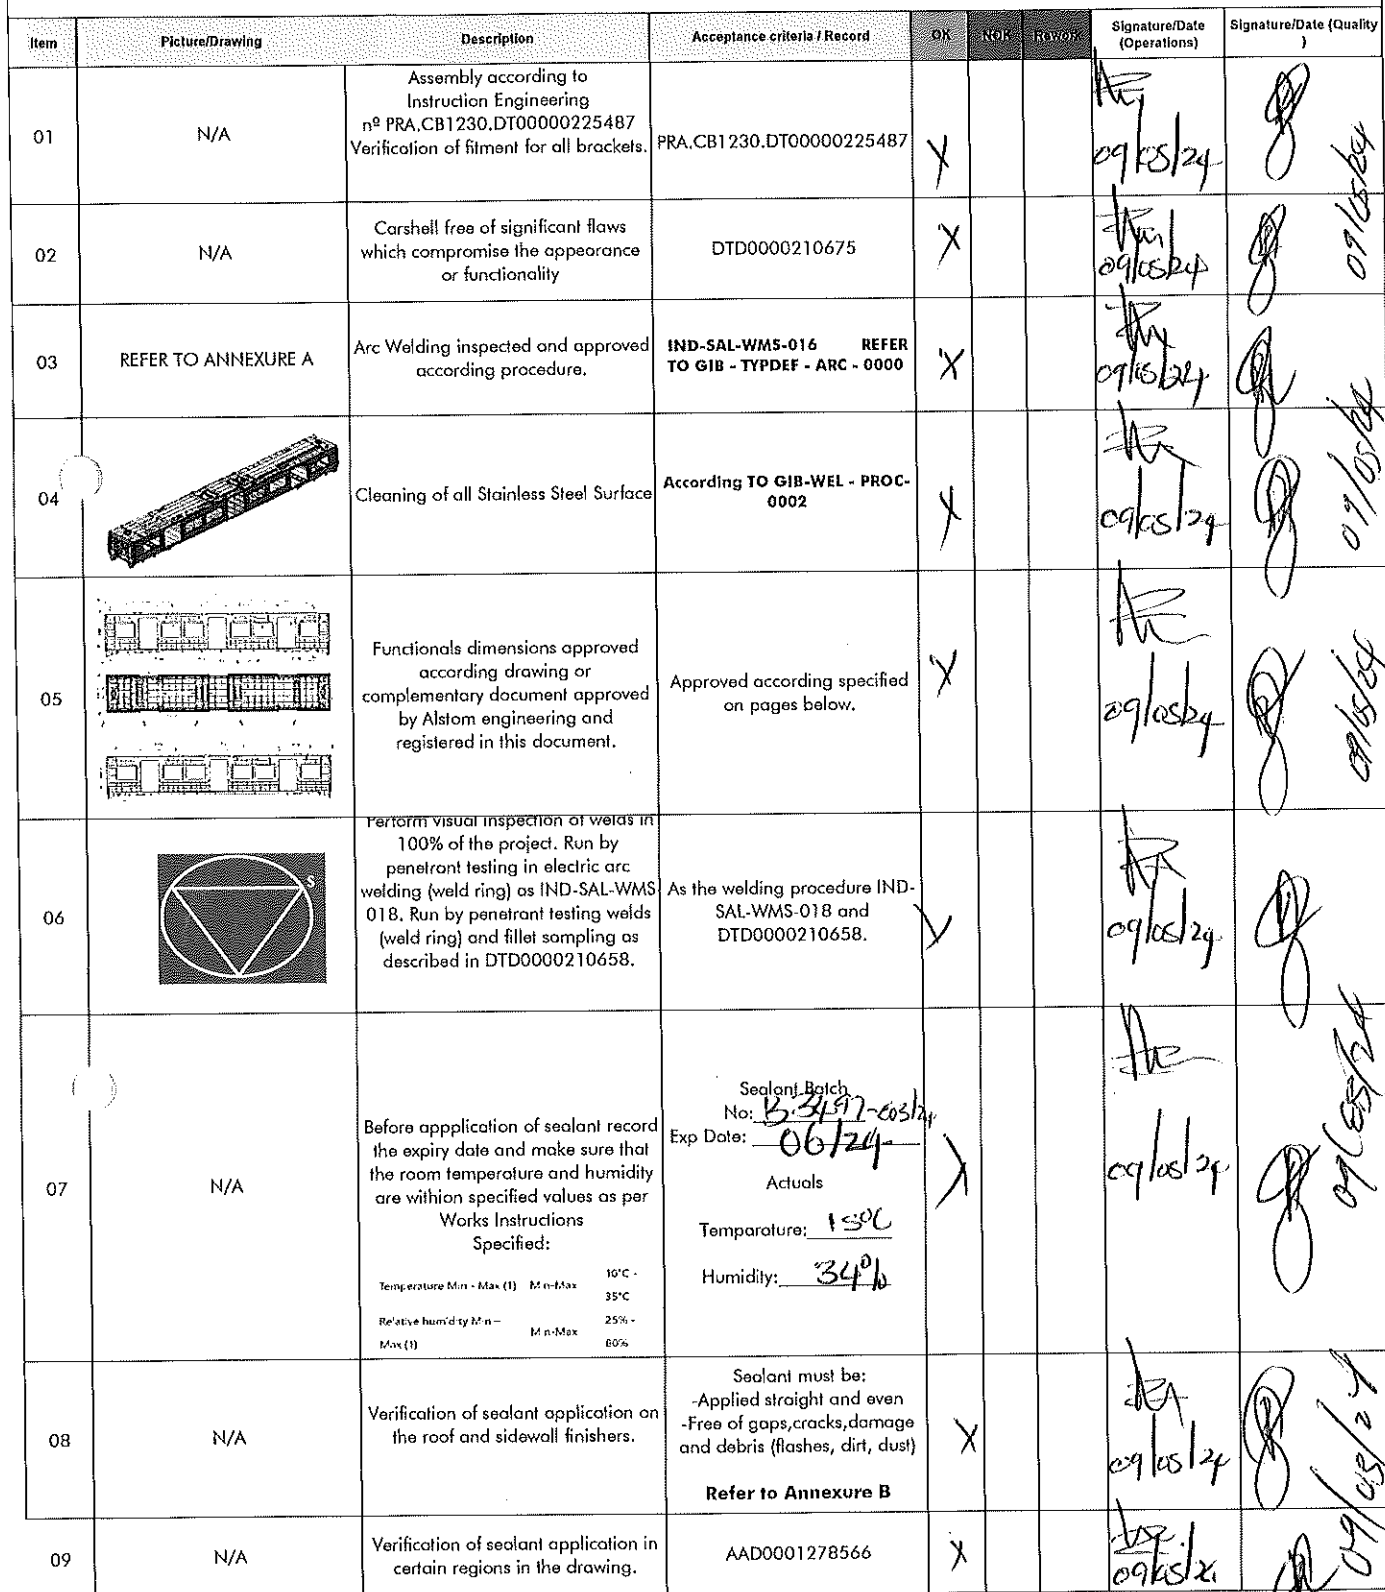 Item Picture/Drawing Description Acceptance criteria / Record OK NOK Rework Signature/Date (Operations) Signature/Date (Quality )
01
N/A
Assembly according to
Instruction Engineering
nº PRA.CB1230.DT00000225487
Verification of fitment for all brackets.
PRA.CB1230.DT00000225487
X
09/05/24
09/05/24
02
N/A
Carshell free of significant flaws
which compromise the appearance
or functionality
DTD0000210675
X
09/05/24
03
REFER TO ANNEXURE A
Arc Welding inspected and approved
according procedure.
IND-SAL-WMS-016 REFER
TO GIB - TYPDEF - ARC - 0000
X
09/05/24
09/05/24
04
Cleaning of all Stainless Steel Surface
According TO GIB-WEL - PROC-
0002
X
09/05/24
05
Functionals dimensions approved
according drawing or
complementary document approved
by Alstom engineering and
registered in this document.
Approved according specified
on pages below.
X
09/05/24
09/05/24
06
S
Perform visual inspection of welds in
100% of the project. Run by
penetrant testing in electric arc
welding (weld ring) as IND-SAL-WMS
018. Run by penetrant testing welds
(weld ring) and fillet sampling as
described in DTD0000210658.
As the welding procedure IND-
SAL-WMS-018 and
DTD0000210658.
X
09/05/24
09/05/24
07
N/A
Before appplication of sealant record
the expiry date and make sure that
the room temperature and humidity
are withion specified values as per
Works Instructions
Specified:
Temperature Min - Max (1) Min-Max 10°C -
35°C
Relative humidity Min – Max (1) Min-Max 25% -
80%
Sealant Batch
No:
Exp Date: 06/24
Actuals
Temparature: 15°C
Humidity: 34%
X
09/05/24
08
N/A
Verification of sealant application on
the roof and sidewall finishers.
Sealant must be:
-Applied straight and even
-Free of gaps,cracks,damage
and debris (flashes, dirt, dust)
Refer to Annexure B
X
09/05/24
09
N/A
Verification of sealant application in
certain regions in the drawing.
AAD0001278566
X
09/05/24